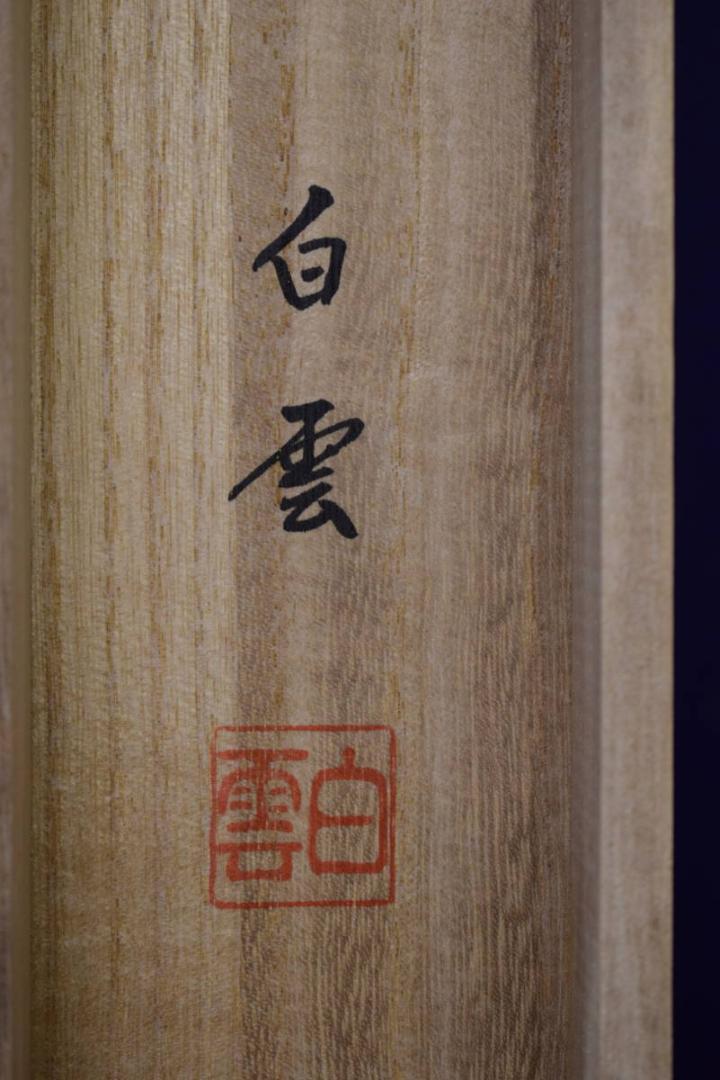 白雲
白雲